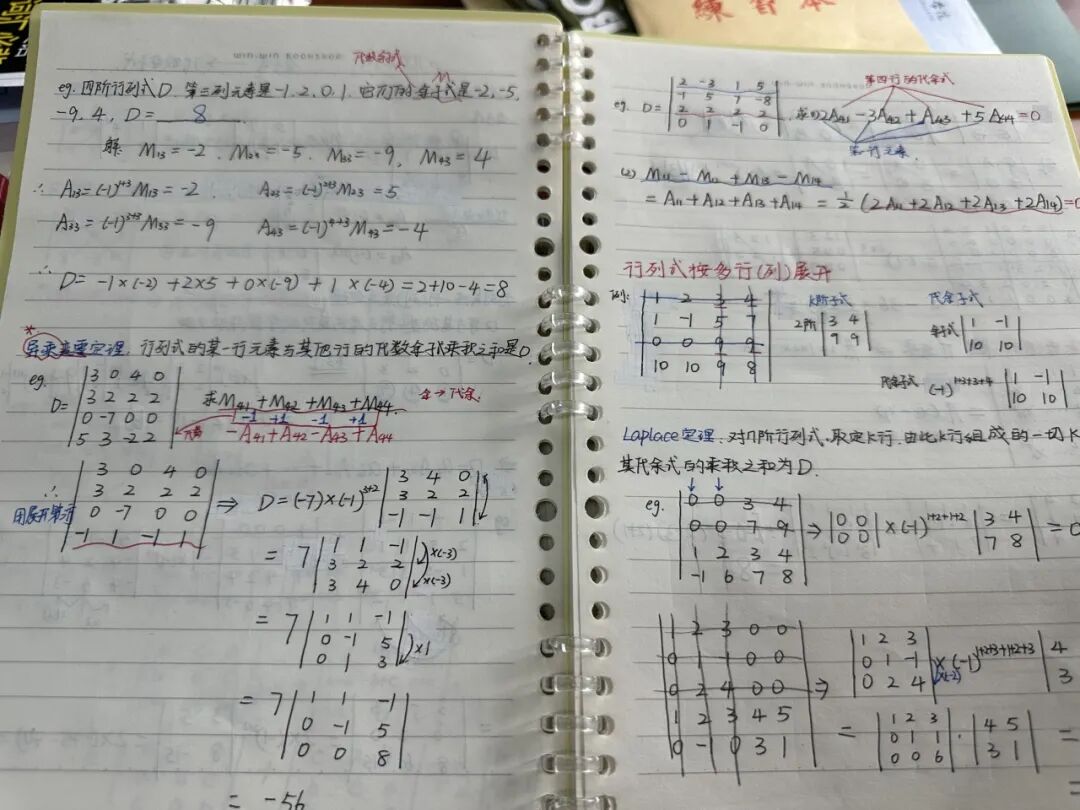 练习本
win.win KOOHSHOP
代数余子式
M
eg. 四阶行列式D 第三列元素是-1,2,0,1.它们的余子式是-2,-5,
-9,4, D= 8
解: M₁₃=-2. M₂₃=-5. M₃₃=-9, M₄₃=4
∴ A₁₃=(-1)¹⁺³M₁₃=-2. A₂₃=(-1)²⁺³M₂₃=5
A₃₃=(-1)³⁺³M₃₃=-9 A₄₃=(-1)⁴⁺³M₄₃=-4
∴ D=-1×(-2)+2×5+0×(-9)+1×(-4)=2+10-4=8
* 异乘变零定理, 行列式的某一行元素与其他行的代数余子式乘积之和是0
eg.
D= | 3 0 4 0 |
| 3 2 2 2 |
| 0 -7 0 0 |
| 5 3 -2 2 |
求M₄₁+M₄₂+M₄₃+M₄₄. 余→代余.
-1 +1 -1 +1
-A₄₁+A₄₂-A₄₃+A₄₄
∴ | 3 0 4 0 |
| 3 2 2 2 |
| 0 -7 0 0 |
| -1 1 -1 1 |
⇒ D=(-7)×(-1)³⁺² | 3 4 0 |
| 3 2 2 |
| -1 -1 1 |
= 7 | 1 1 -1 |
| 3 2 2 |
| 3 4 0 |
×(-3)
×(-3)
= 7 | 1 1 -1 |
| 0 -1 5 |
| 0 1 3 |
×1
= 7 | 1 1 -1 |
| 0 -1 5 |
| 0 0 8 |
= -56
第四行的代余式
eg. D= | 2 -3 1 5 |
| 1 5 7 -8 |
| 2 2 2 2 |
| 0 1 -1 0 |
, 求(1)2A₄₁-3A₄₂+A₄₃+5A₄₄=0
第一行元素.
(2) M₁₁-M₁₂+M₁₃-M₁₄
=A₁₁+A₁₂+A₁₃+A₁₄=½(2A₁₁+2A₁₂+2A₁₃+2A₁₄)=0
行列式按多行(列)展开
例:
| 1 2 3 4 |
| 1 -1 5 7 |
| 0 0 9 9 |
| 10 10 9 8 |
k阶子式
2阶 | 3 4 |
| 9 9 |
代余子式
余子式 | 1 -1 |
| 10 10 |
代余子式 (-1)¹⁺³⁺³⁺⁴ | 1 -1 |
| 10 10 |
Laplace定理. 对n阶行列式,取定k行,由此k行组成的一切k
其代余式的乘积之和为D.
eg. | 0 0 3 4 |
| 0 0 7 9 |
| 1 2 3 4 |
| -1 6 7 8 |
⇒ | 0 0 |
| 0 0 |
×(-1)¹⁺²⁺¹⁺² | 3 4 |
| 7 8 |
⇒ 0
| 1 2 3 0 0 |
| 0 1 -1 0 0 |
| 0 2 4 0 0 |
| 1 2 3 4 5 |
| 0 -1 0 3 1 |
⇒ | 1 2 3 |
| 0 1 -1 |
| 0 2 4 |
×(-2)
×(-1)¹⁺²⁺³⁺¹⁺²⁺³ | 4
| 3
= | 1 2 3 |
| 0 1 1 |
| 0 0 6 |
· | 4 5 |
| 3 1 |
=